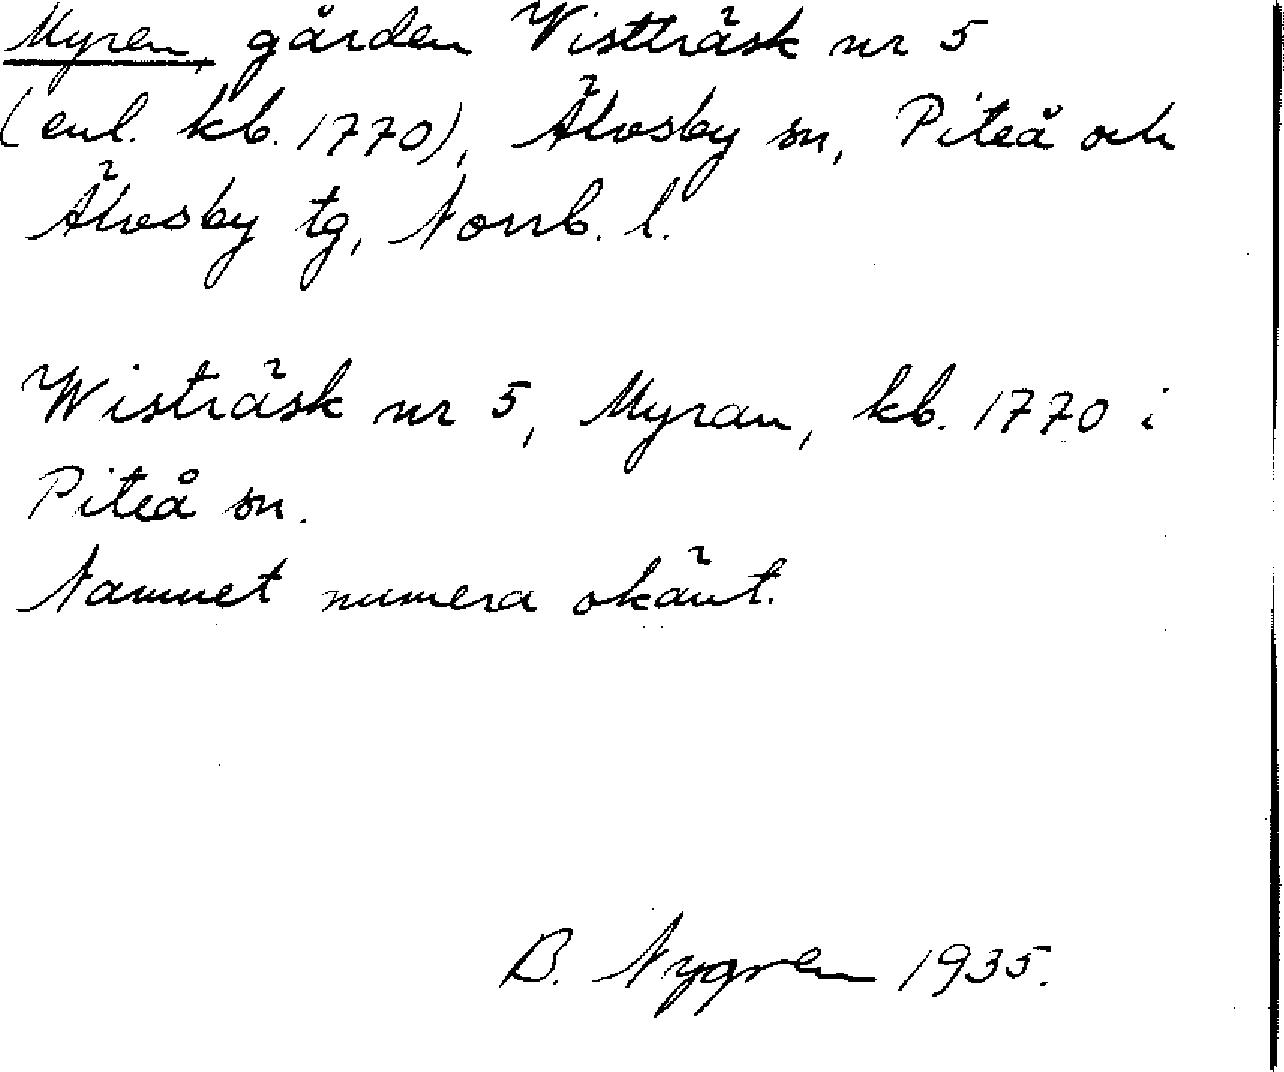 Myren, gården Vistträsk nr 5
(enl. kb. 1770), Älvsby sn, Piteå och
Älvsby tg, Norrb. l.
Wisträsk nr 5, Myran, kb. 1770 i
Piteå sn.
Namnet numera okänt.
B. Nygren 1935.